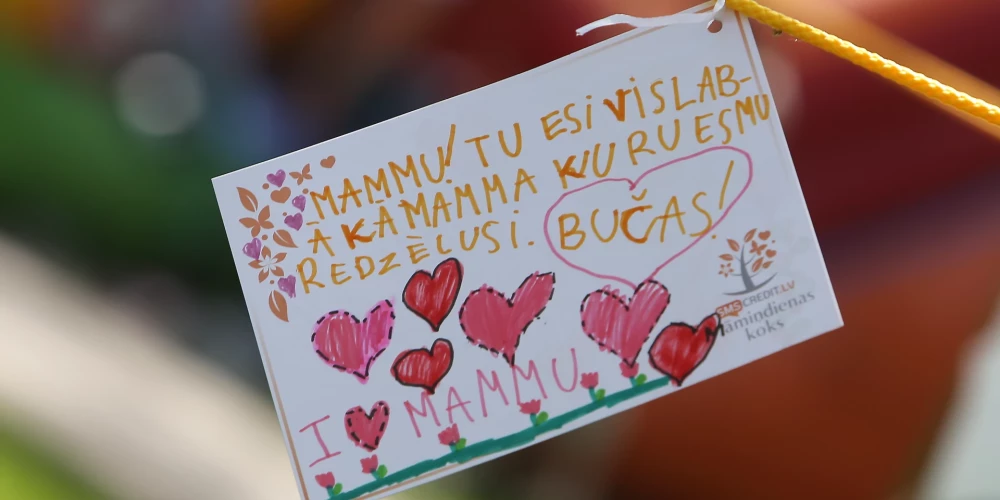 MAMMU! TU ESI VISLAB-
ĀKĀ MAMMA KURU ESMU
REDZĒLUSI. BUČAS!
SMSCREDIT.LV
āmiņdienas
koks
I MAMMU